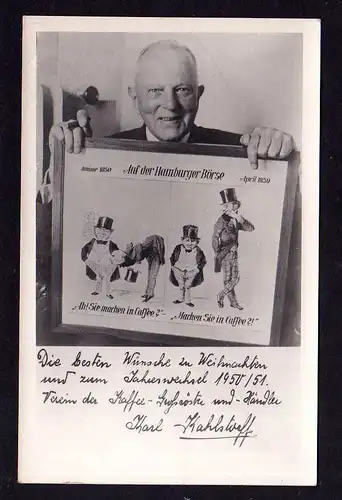 Januar 1850 Auf der Hamburger Börse April 1850
„Ah! Sie machen in Caffee?“ „Machen Sie in Caffee?!“
Die besten Wünsche zu Weihnachten
und zum Jahreswechsel 1950/51.
Verein der Kaffee-Großröster und-Händler
Karl Kahlstorff